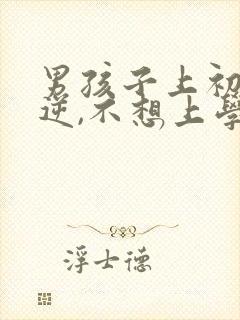 男孩子上初
逆,不想上学
浮士德